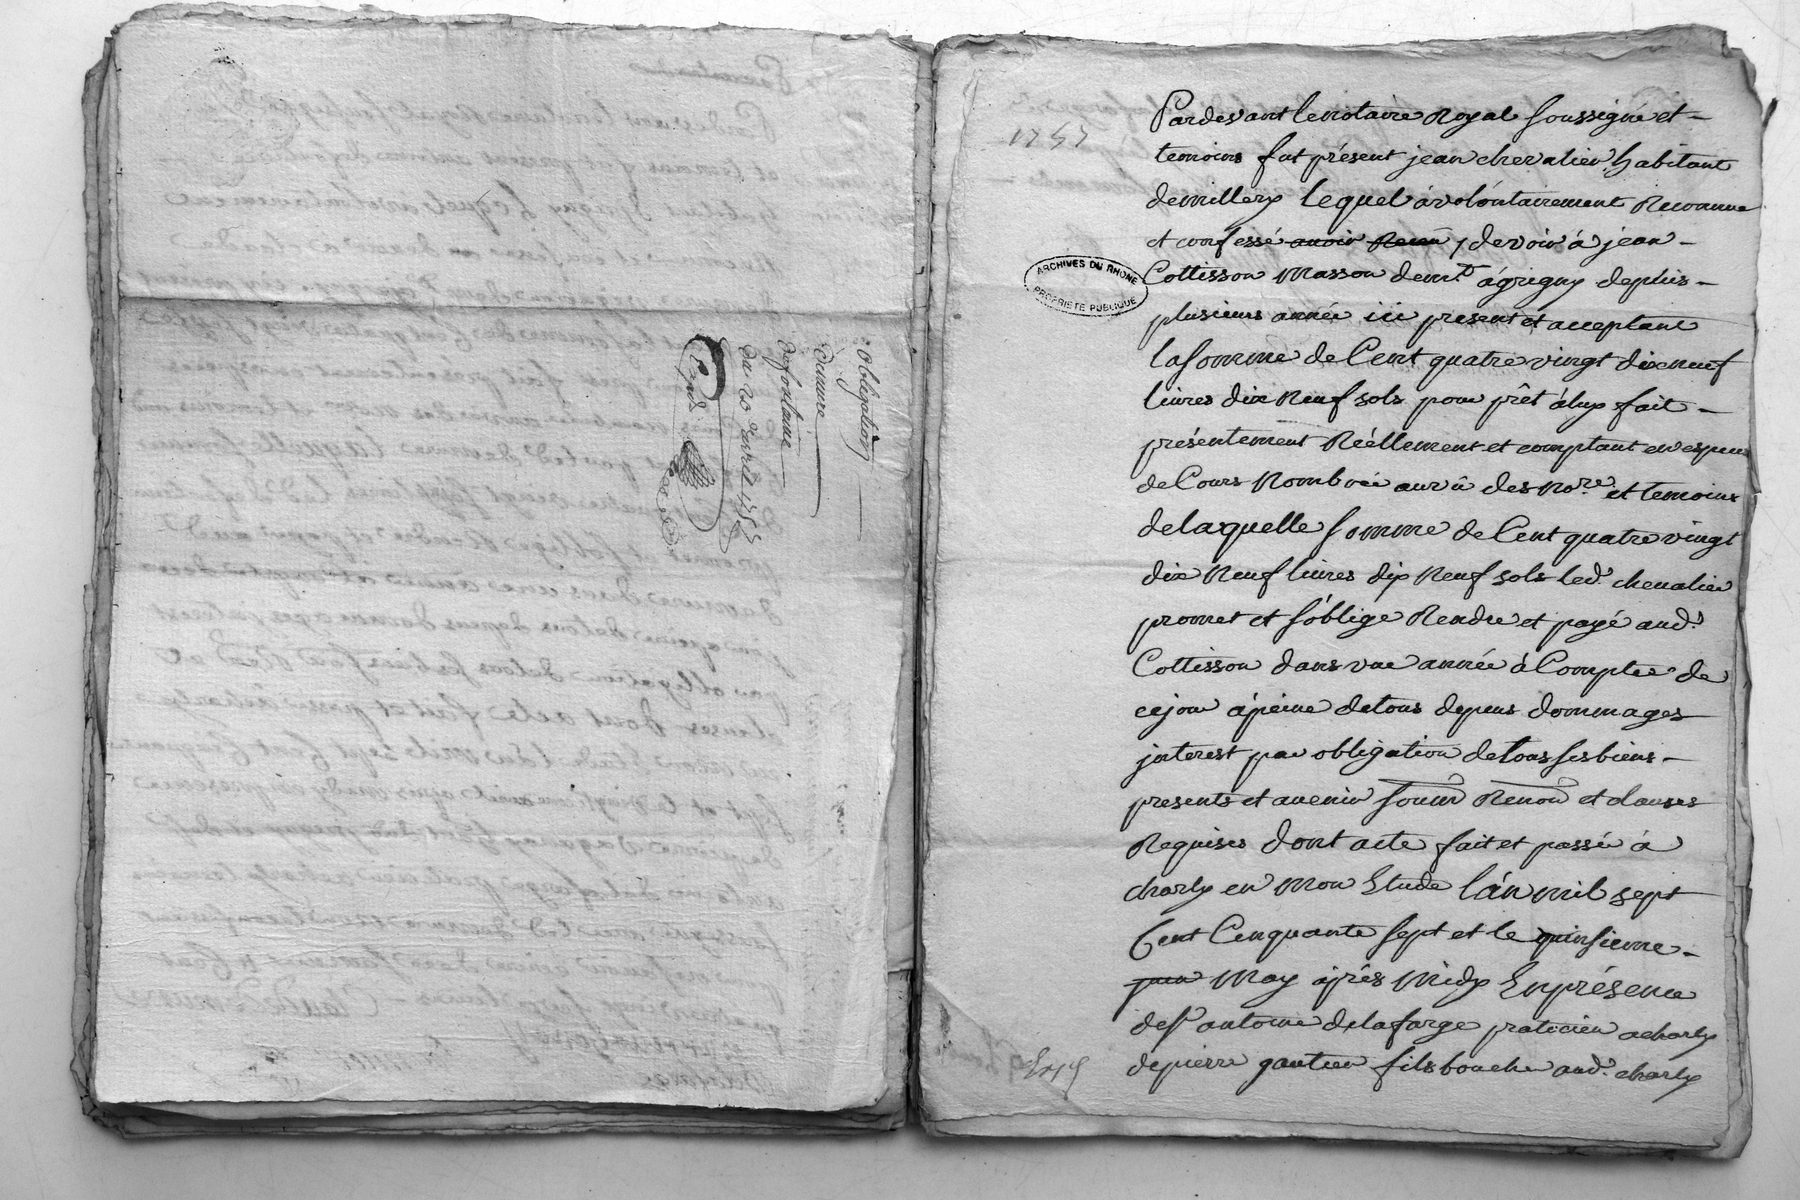 obligation
demure
defontaine
du 20 avril 1757
Expd
1757
ARCHIVES DU RHONE
PROPRIETE PUBLIQUE
Pardevant le notaire Royal soussigné et
temoins fut présent jean chevalier habitant
demillery lequel à volontairement Reconnu
et confessé avoir Receu / devoir à jean
Cottisson Masson demt. à grigny depuis
plusieurs année ici present et acceptant
la somme de Cent quatre vingt dix neuf
livres dix Neuf sols pour prêt à luy fait
présentement Réellement et comptant en espece
de Cours Nombrée au vû des Nore. et temoins
de laquelle somme de Cent quatre vingt
dix Neuf livres dix Neuf sols led. chevalier
promet et s'oblige Rendre et payé aud.
Cottisson dans une année à Compter de
ce jour à peine de tous depens dommages
interest par obligation de tous ses biens
presents et avenir soum Renon et clauses
Requises dont acte fait et passé à
charly en Mon Etude l'an mil sept
Cent Cinquante sept et le quinsieme
juin May après Midy En présence
de sr antoine delafarge praticien a charly
de pierre gautier fils boucher aud. charly
Exp